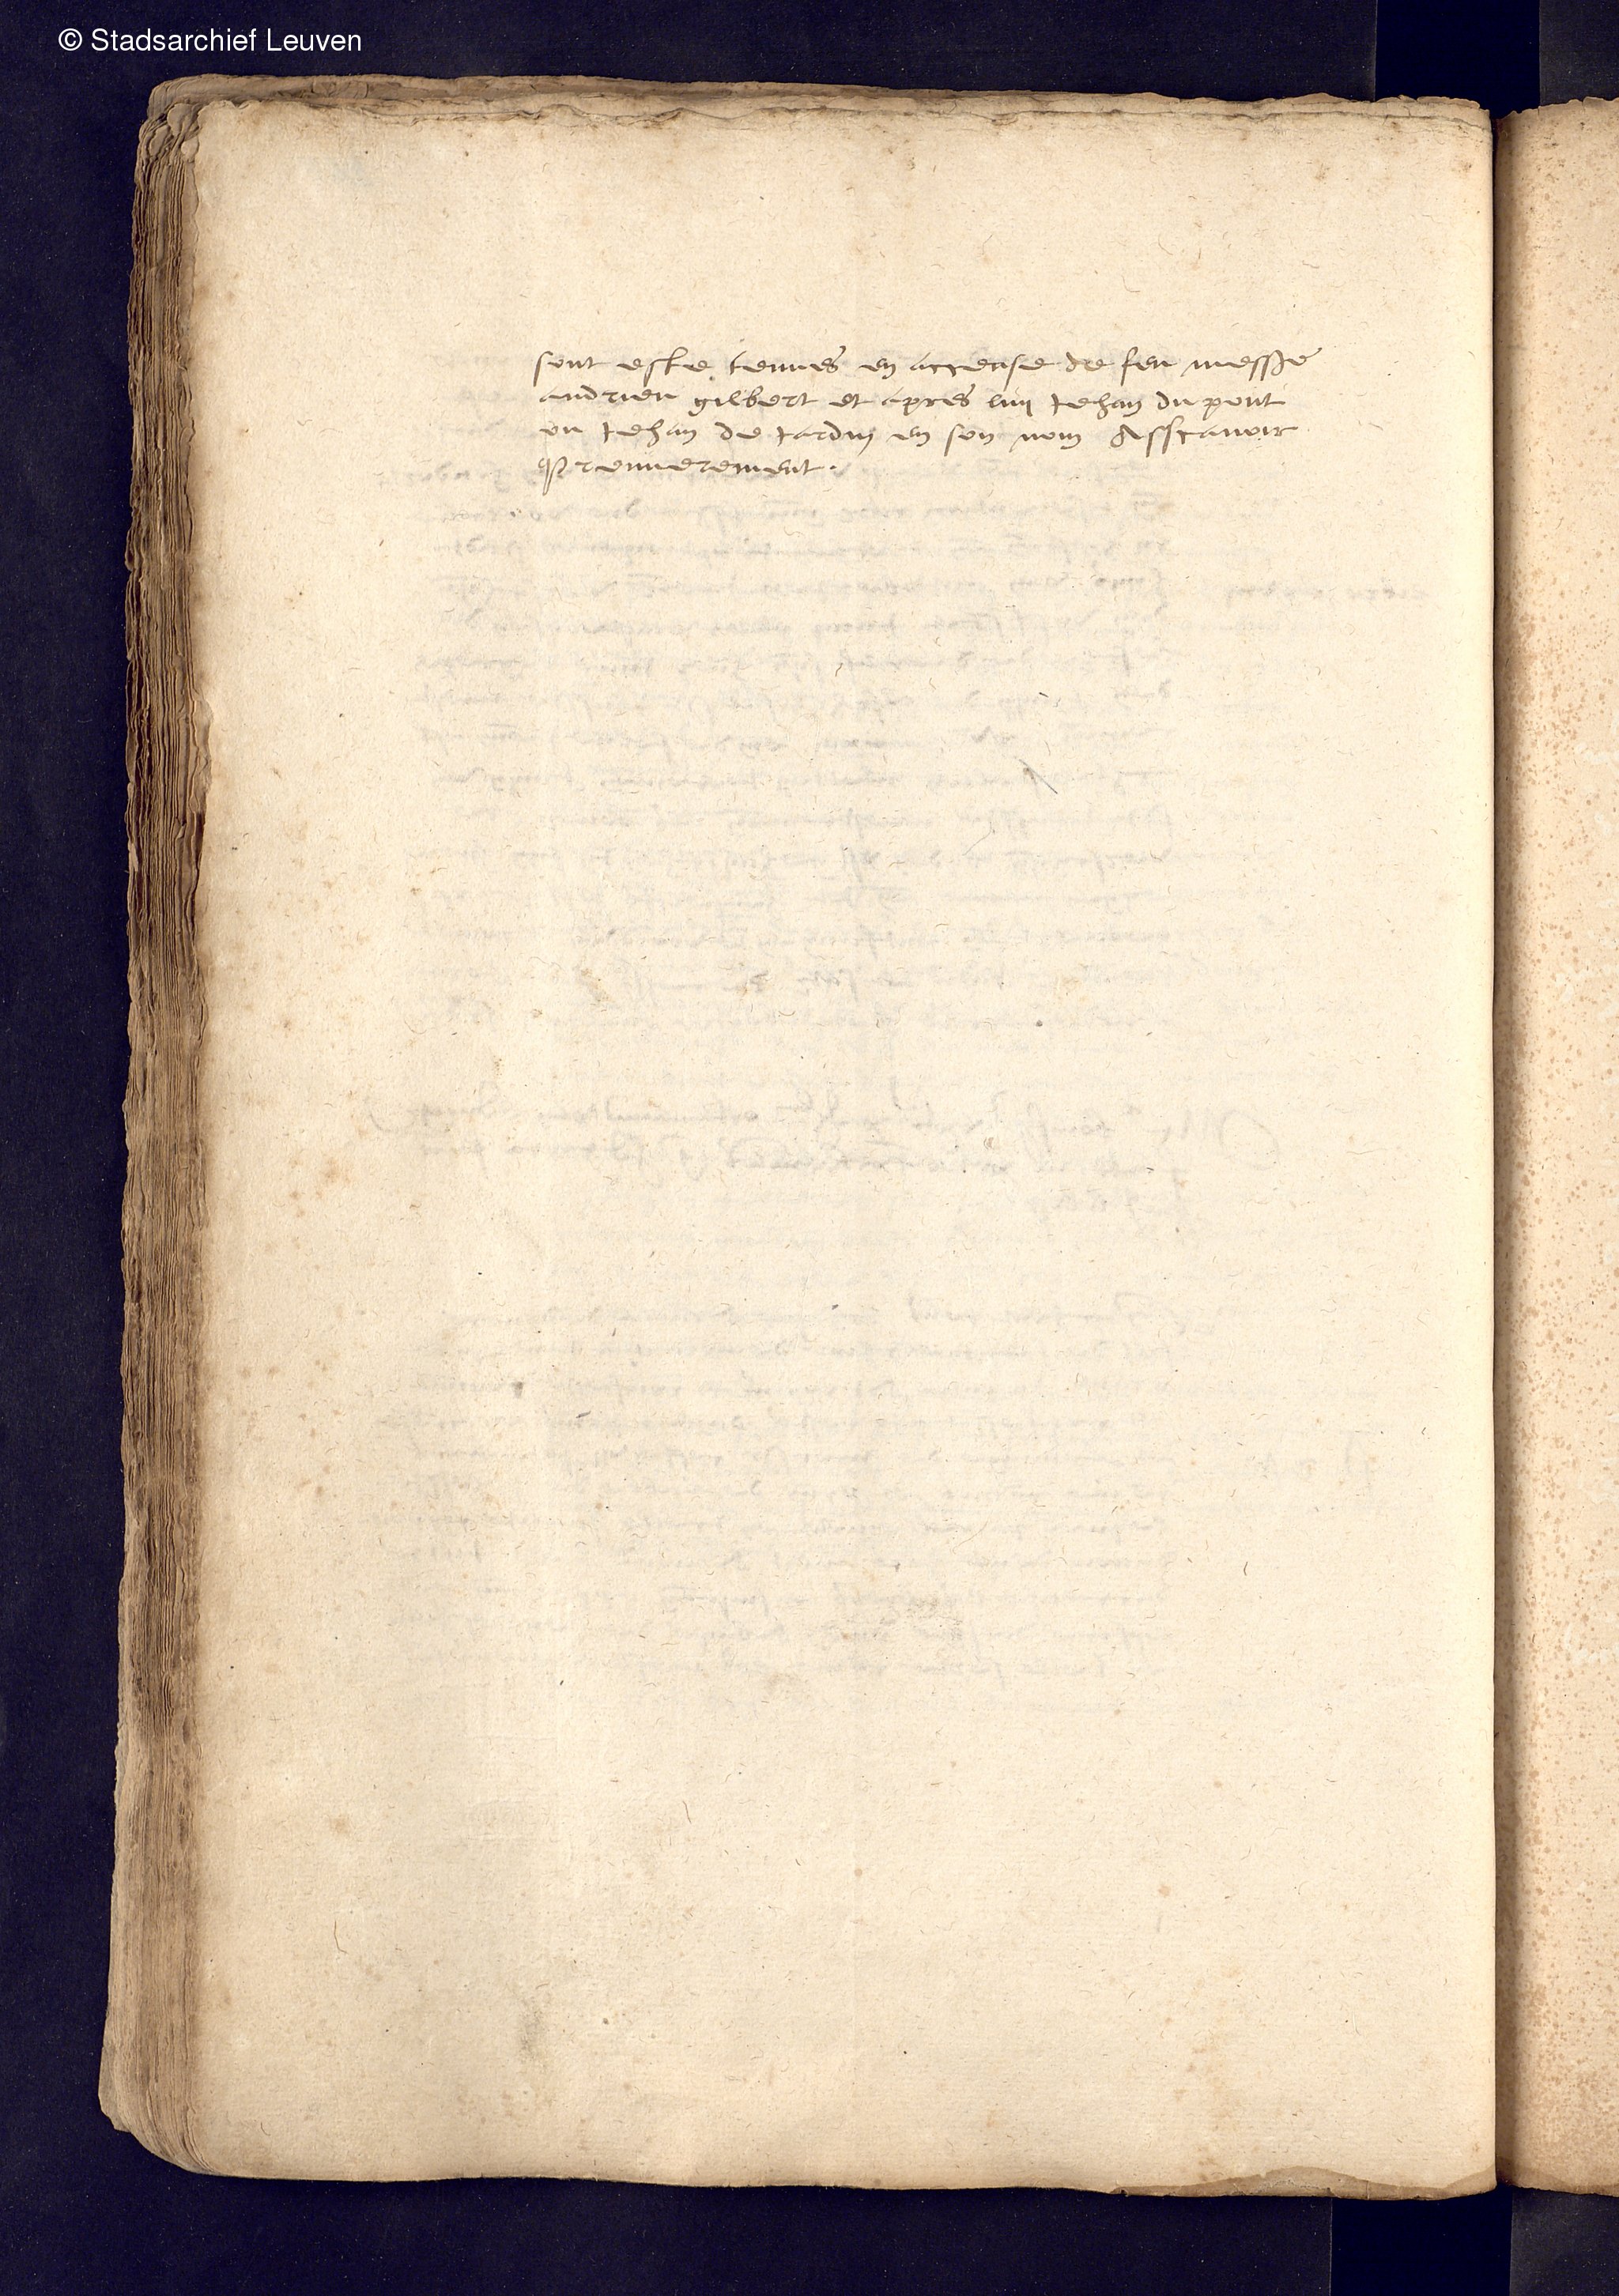 © Stadsarchief Leuven
sont este tenues en accense de feu messe
andrieu gilbert et apres luy Jehan du pont
ou Jehan de Jardin en son nom Asscavoir
Premierement.